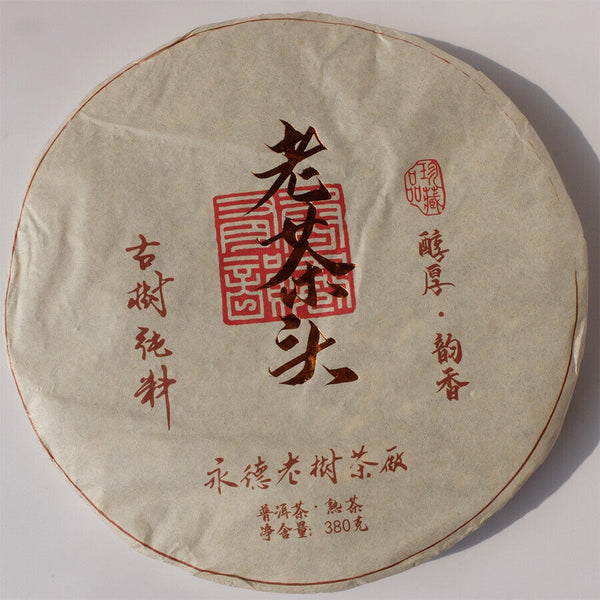 老茶头
珍藏品
醇厚·韵香
古树纯料
永德老树茶厰
普洱茶·熟茶
净含量: 380克